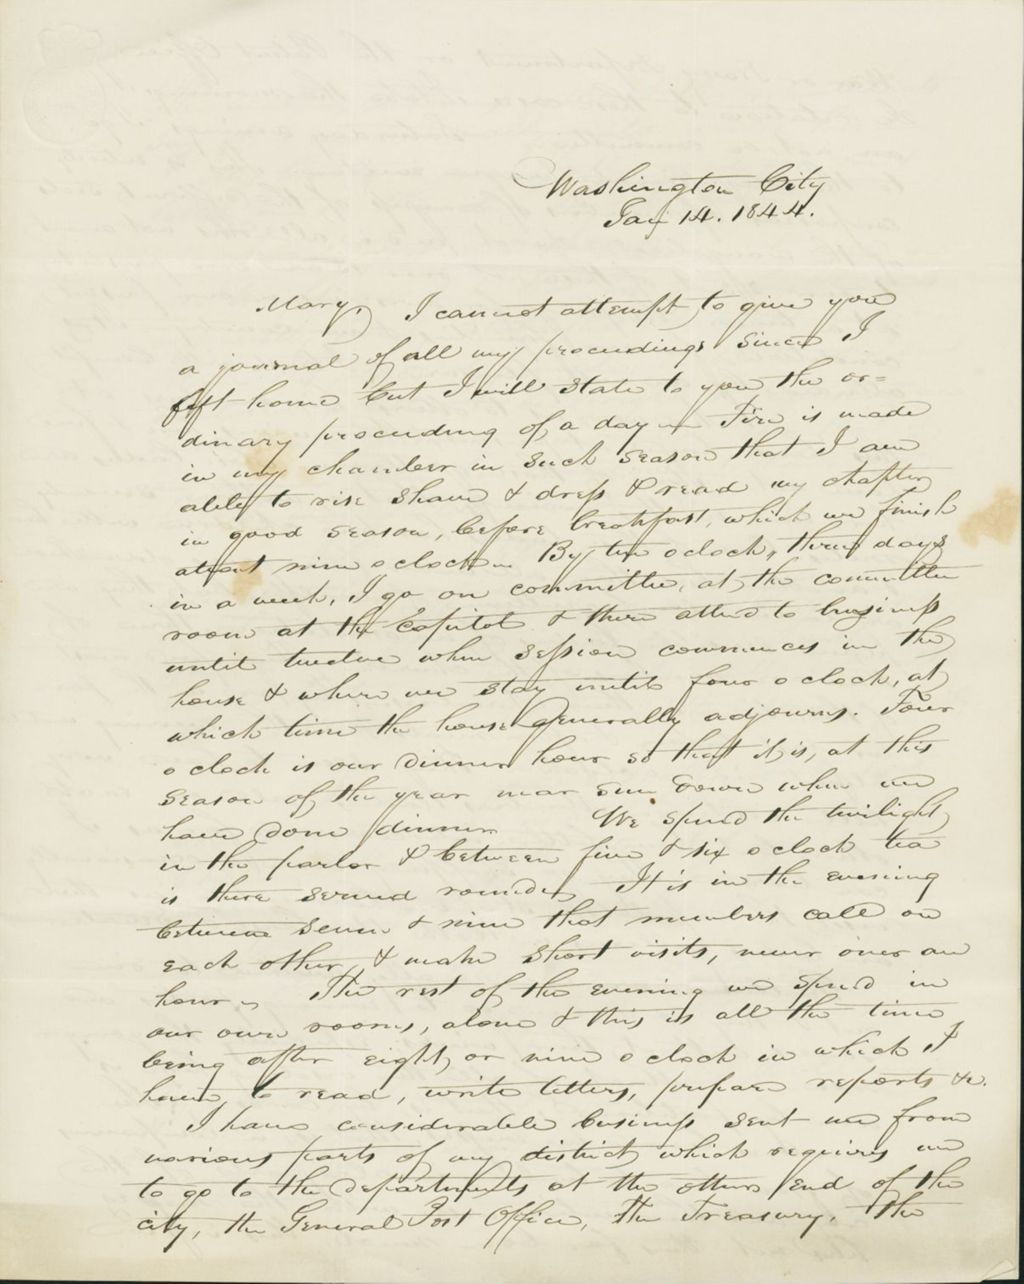 Washington City
Jany 14. 1844.
Mary, I cannot attempt to give you
a journal of all my proceedings since I
left home but I will state to you the or=
dinary proceeding of a day – Fire is made
in my chamber in such season that I am
able to rise shave & dress & read my chapter
in good season, before breakfast, which we finish
about nine o clock – By ten o clock, three days
in a week, I go on committee, at the committee
room at the Capitol & there attend to business
until twelve when session commences in the
house & where we stay until four o clock, at
which time the house generally adjourns. Four
o clock is our dinner hour so that it is, at this
season of the year near sun down when we
have done dinner We spend the twilight
in the parlor & between five & six o clock tea
is there served round – It is in the evening
between seven & nine that members call on
each other, & make short visits, never over an
hour – The rest of the evening we spend in
our own rooms, alone & this is all the time
being after eight or nine o clock in which I
have to read, write letters, prepare reports &c.
I have considerable business sent me from
various parts of my district which requires me
to go to the departments at the other end of the
city, the General Post Office, the Treasury, the